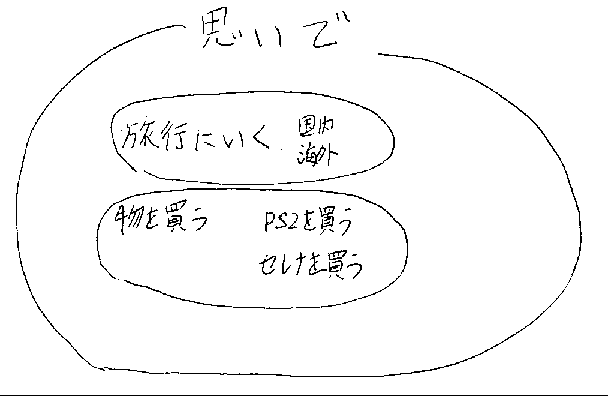 思いで
旅行にいく 国内
海外
物を買う PS2を買う
セレナを買う